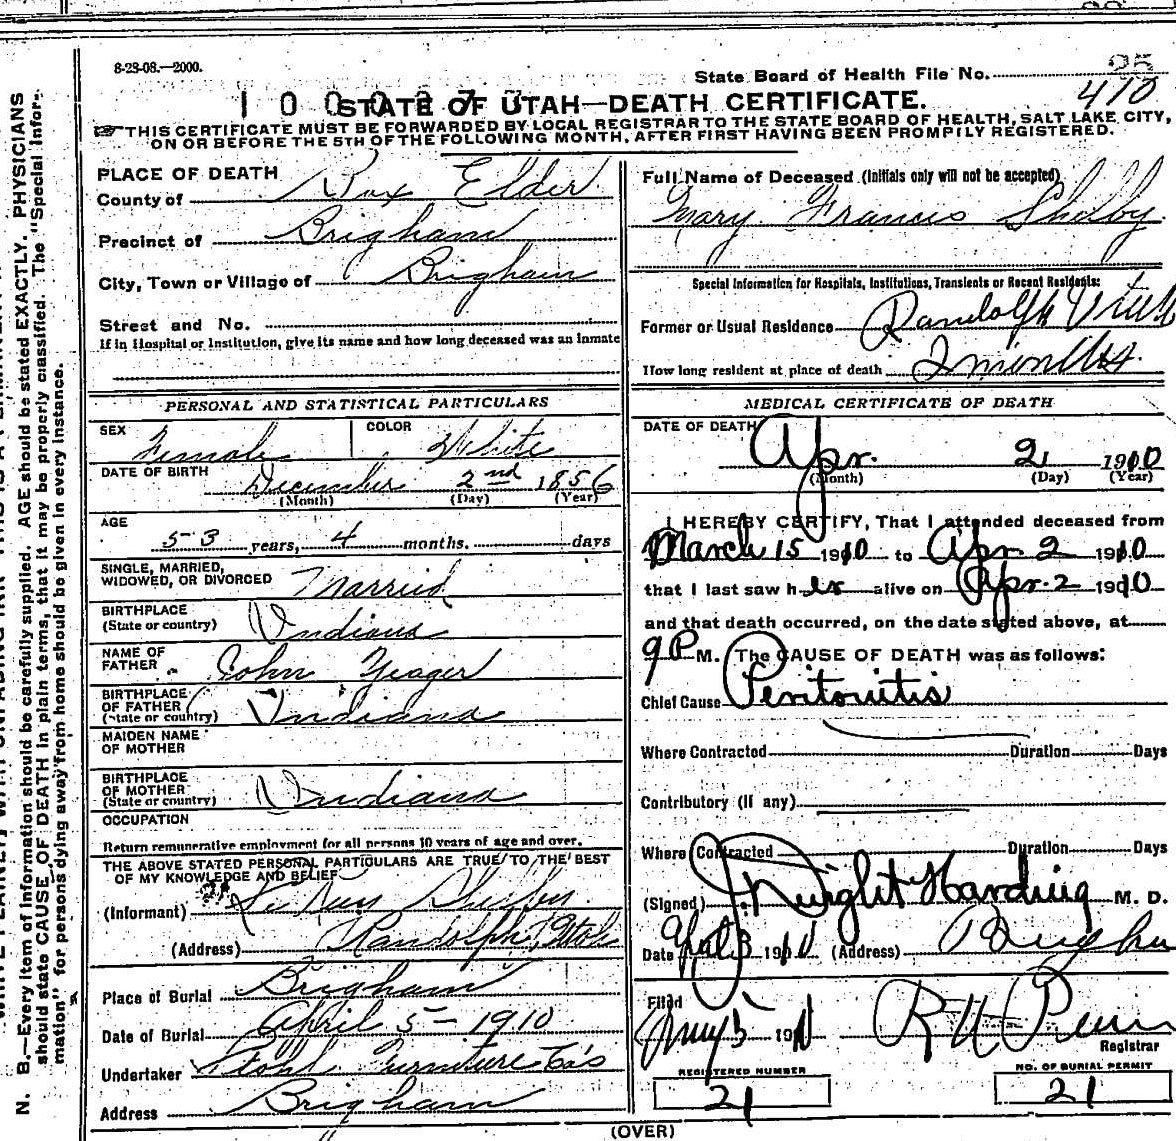 8-23-08.—2000.
State Board of Health File No.
410
STATE OF UTAH—DEATH CERTIFICATE.
THIS CERTIFICATE MUST BE FORWARDED BY LOCAL REGISTRAR TO THE STATE BOARD OF HEALTH, SALT LAKE CITY,
ON OR BEFORE THE 5TH OF THE FOLLOWING MONTH, AFTER FIRST HAVING BEEN PROMPILY REGISTERED.
PLACE OF DEATH
County of Box Elder
Precinct of Brigham
City, Town or Village of Brigham
Street and No.
If in Hospital or Institution, give its name and how long deceased was an inmate
PERSONAL AND STATISTICAL PARTICULARS
SEX Female COLOR White
DATE OF BIRTH December 2nd 1856
(Month) (Day) (Year)
AGE
53 years, 4 months. days
SINGLE, MARRIED,
WIDOWED, OR DIVORCED Married
BIRTHPLACE
(State or country) Indiana
NAME OF
FATHER John Yeager
BIRTHPLACE
OF FATHER
(State or country) Indiana
MAIDEN NAME
OF MOTHER
BIRTHPLACE
OF MOTHER
(State or country) Indiana
OCCUPATION
Return remunerative employment for all persons 10 years of age and over.
THE ABOVE STATED PERSONAL PARTICULARS ARE TRUE TO THE BEST
OF MY KNOWLEDGE AND BELIEF
(Informant)
(Address) Randolph Utah
Place of Burial Brigham
Date of Burial April 5 - 1910
Undertaker Stohl Furniture Co's
Address Brigham
Full Name of Deceased (Initials only will not be accepted)
Mary Francis Shelby
Special Information for Hospitals, Institutions, Transients or Recent Residents:
Former or Usual Residence Randolph Utah
How long resident at place of death 2 months.
MEDICAL CERTIFICATE OF DEATH
DATE OF DEATH
Apr. 2 1910
(Month) (Day) (Year)
I HEREBY CERTIFY, That I attended deceased from
March 15 1910 to Apr 2 1910
that I last saw her alive on Apr. 2 1910
and that death occurred, on the date stated above, at
9 P M. The CAUSE OF DEATH was as follows:
Chief Cause Peritonitis
Where Contracted Duration Days
Contributory (if any)
Where Contracted Duration Days
(Signed) J Dwight Harding M. D.
Date 3 1910 (Address)
Filed May 5 1910
Registrar
REGISTERED NUMBER
21
NO. OF BURIAL PERMIT
21
(OVER)
N. B.—Every item of information should be carefully supplied. AGE should be stated EXACTLY. PHYSICIANS
should state CAUSE OF DEATH in plain terms, that it may be properly classified. The "Special Infor-
mation" for persons dying away from home should be given in every instance.